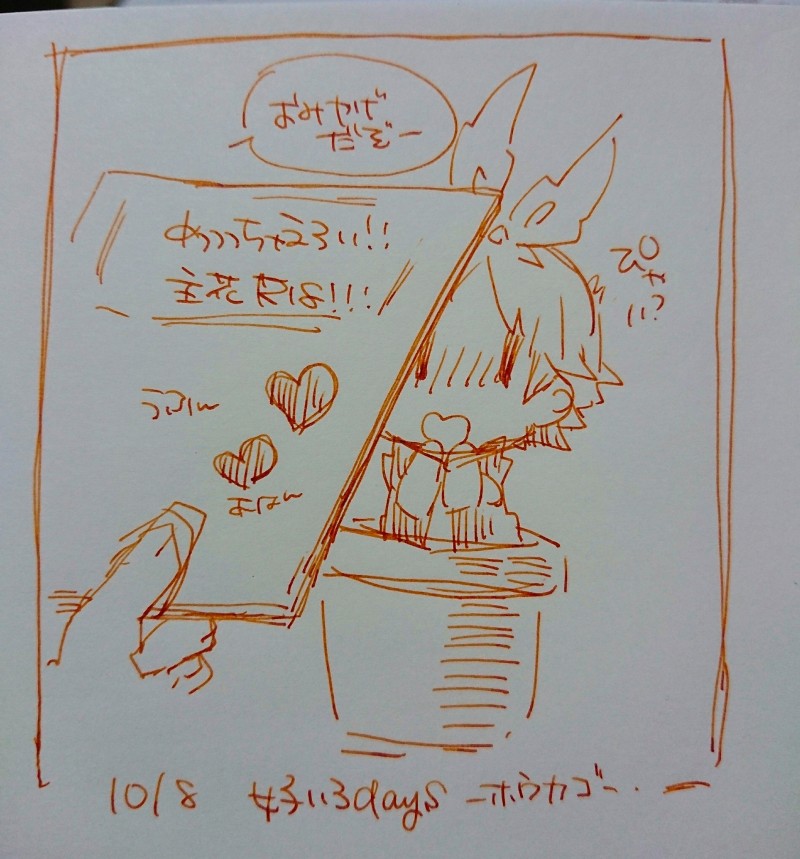 おみやげ
だぞー
めっっちゃえろい!!
主花R18!!!
ぴゃ
い?
うふん
あはん
10/8 好いろdays -ホウカゴ-